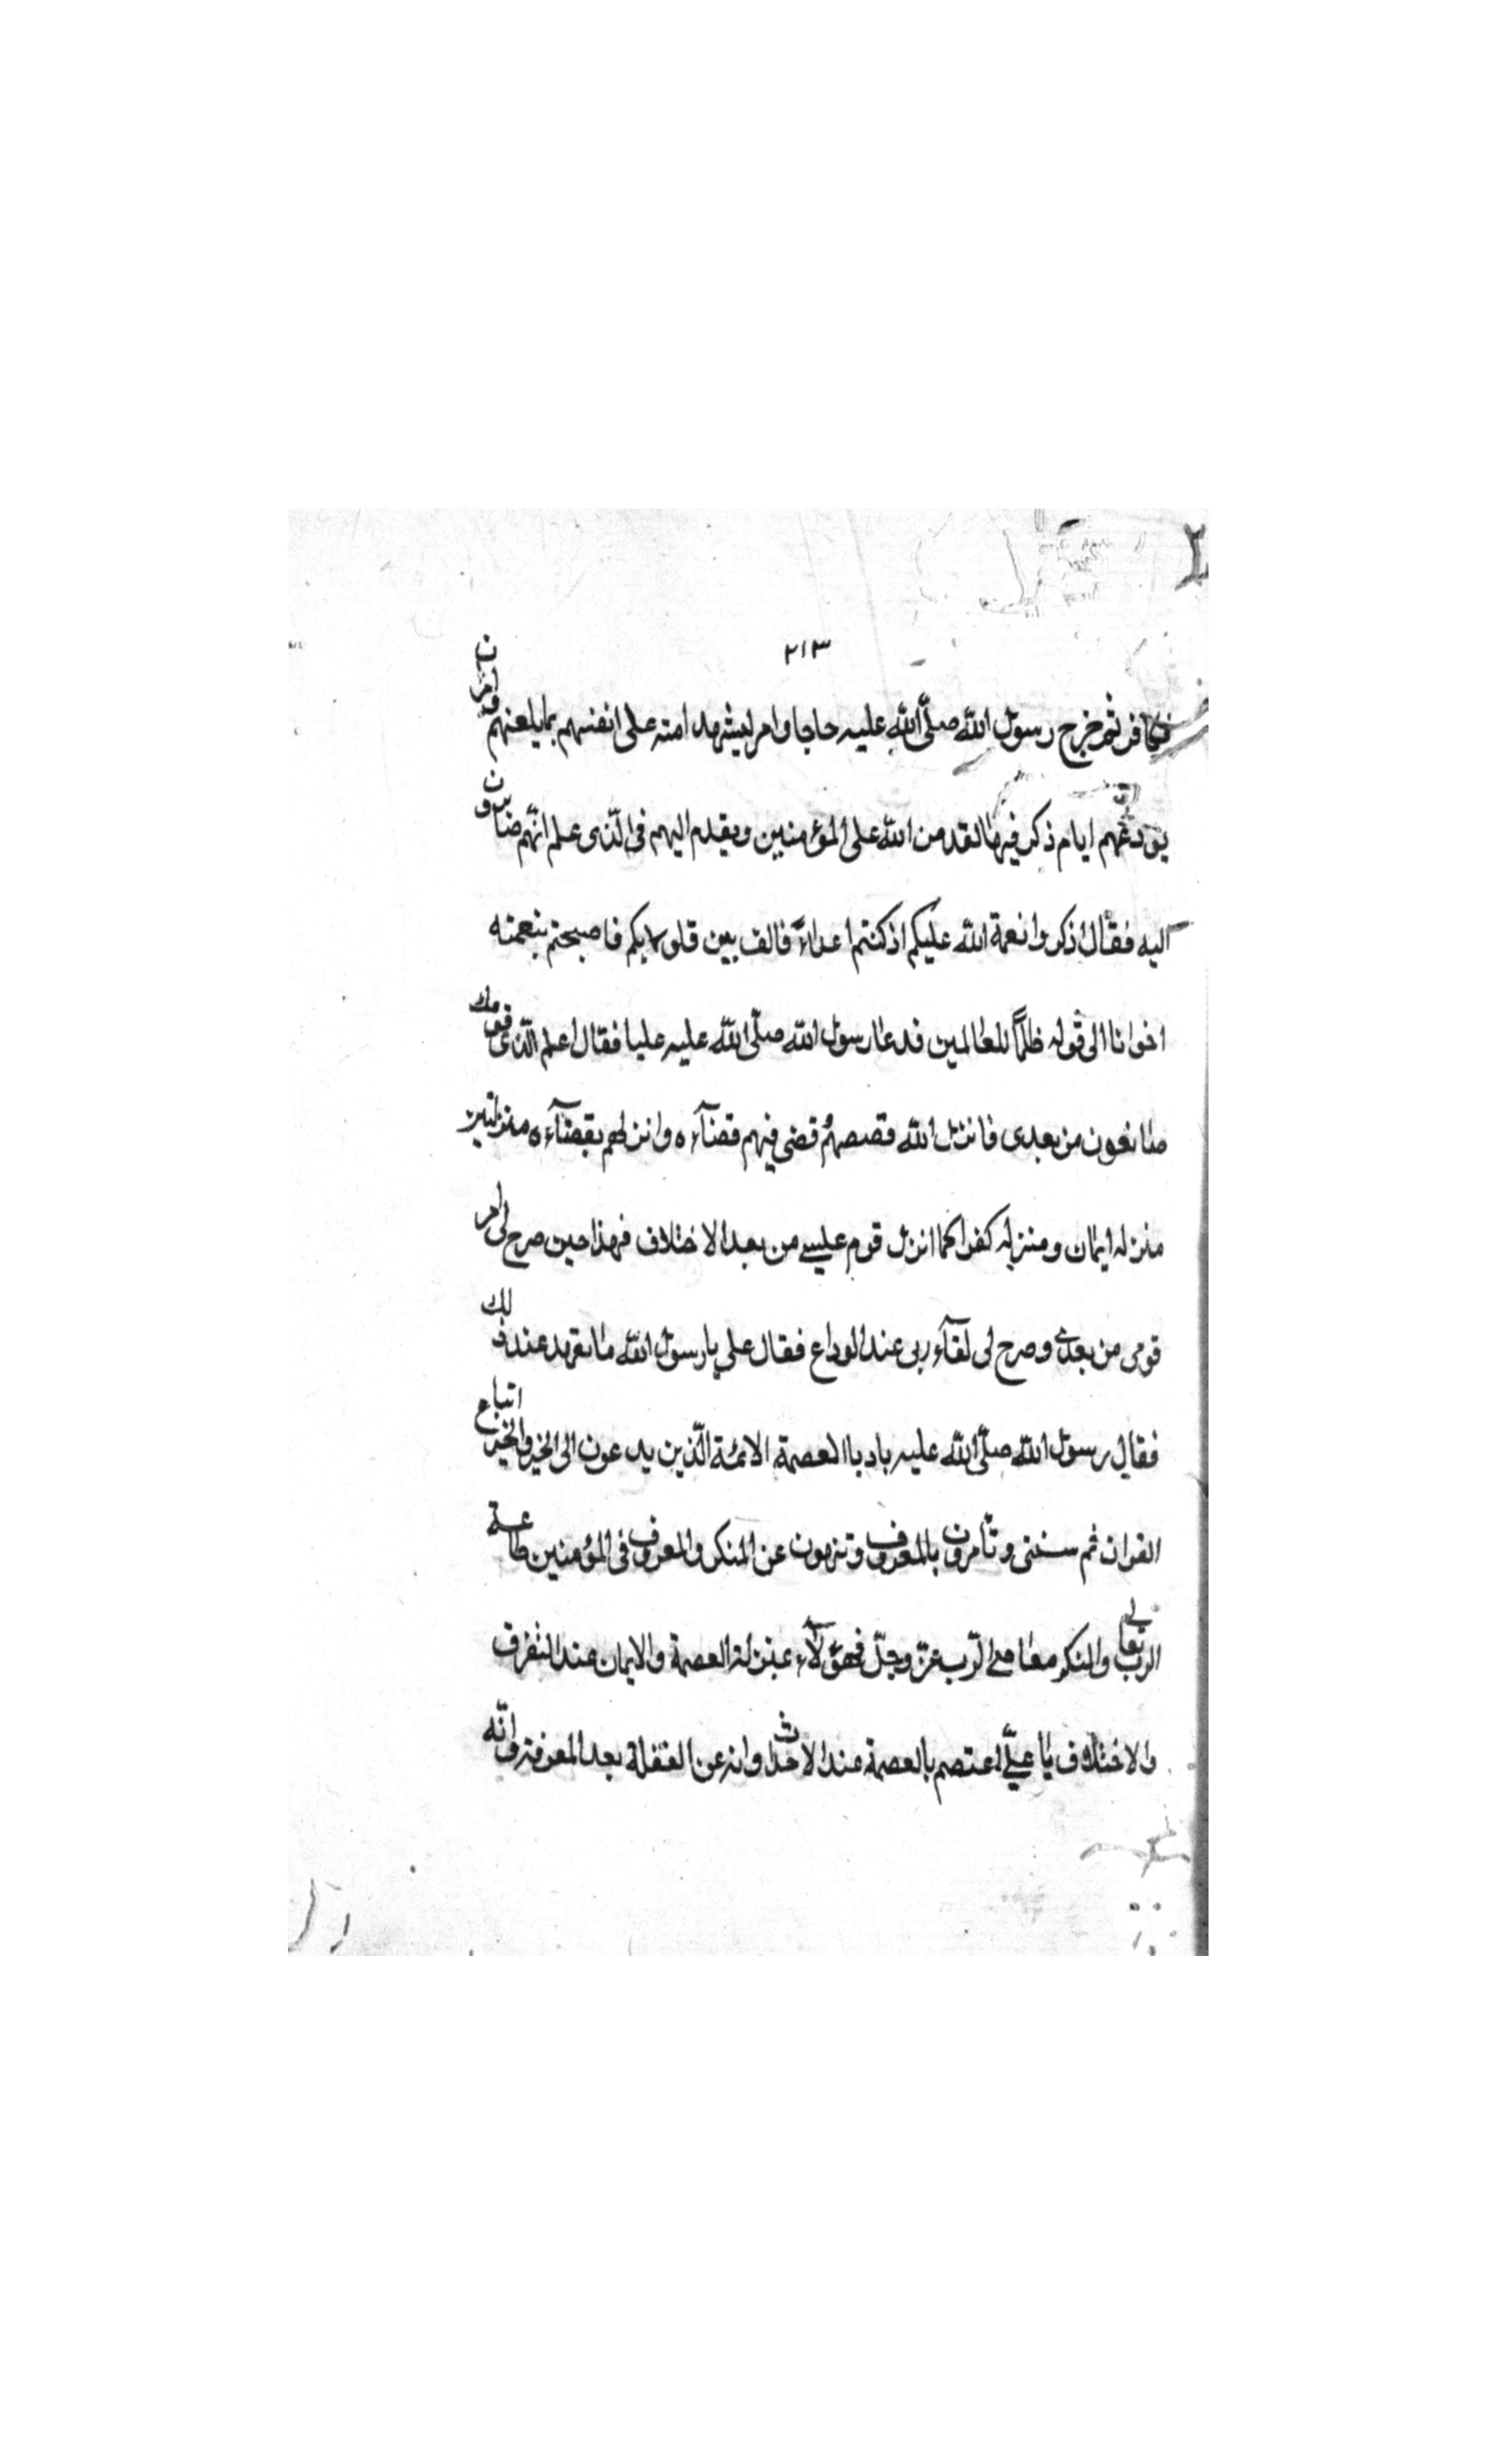 ٢١٣
فيما فر ثم خرج رسول الله صلّى الله عليه حاجا وامر ليشهد امته على انفسهم بما يلعنهم وامر ان
يودعهم ايام ذكر فيها لقد من الله على المؤمنين ويقدم اليهم فى الّذى علم انّهم ضايرون
اليه فقال اذكروا نعمة الله عليكم اذ كنتم اعداءً فالف بين قلوبكم فاصبحتم بنعمته
اخوانا الى قوله ظلمًا للعالمين فدعا رسول الله صلّى الله عليه عليا فقال اعلم الّذى قومك
صانعون من بعدى فانزل الله قصصهم قضى فيهم قضآءه وانزلهم بقضآءه منزلتين
منزله ايمان ومنزله كفرا كما انزل قوم عيسى من بعد الاختلاف فهذا حين صرح لى امر
قومى من بعدى وصرح لى لقآء ربى عند الوداع فقال على يا رسول الله ما تعهد عند ذلك
فقال رسول الله صلّى الله عليه باد باالعصمة الائمة الّذين يدعون الى الخير والخير اتباع
القران ثم سنتى وتأمرون بالمعروف وتنهون عن المنكر والمعروف فى المؤمنين طاعة
الرب تعالى والمنكر معاصى الرّب عزّ وجلّ فهؤلآء بمنزلة العصمة والايمان عند التفرق
والاختلاف يا علىّ اعتصم بالعصمة عند الاحداث وانه عن الغفلة بعد المعرفة وانّه